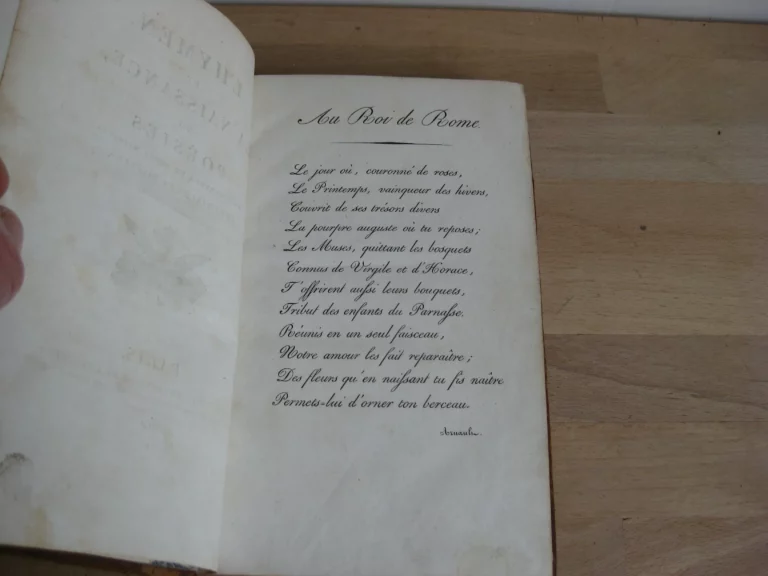 L'HYMEN
NAISSANCE,
POÉSIES
Au Roi de Rome.
Le jour où, couronné de roses,
Le Printemps, vainqueur des hivers,
Couvrit de ses trésors divers
La pourpre auguste où tu reposes;
Les Muses, quittant les bosquets
Connus de Virgile et d'Horace,
T'offrirent aussi leurs bouquets,
Tribut des enfants du Parnasse.
Réunis en un seul faisceau,
Notre amour les fait reparaître;
Des fleurs qu'en naissant tu fis naître
Permets=lui d'orner ton berceau.